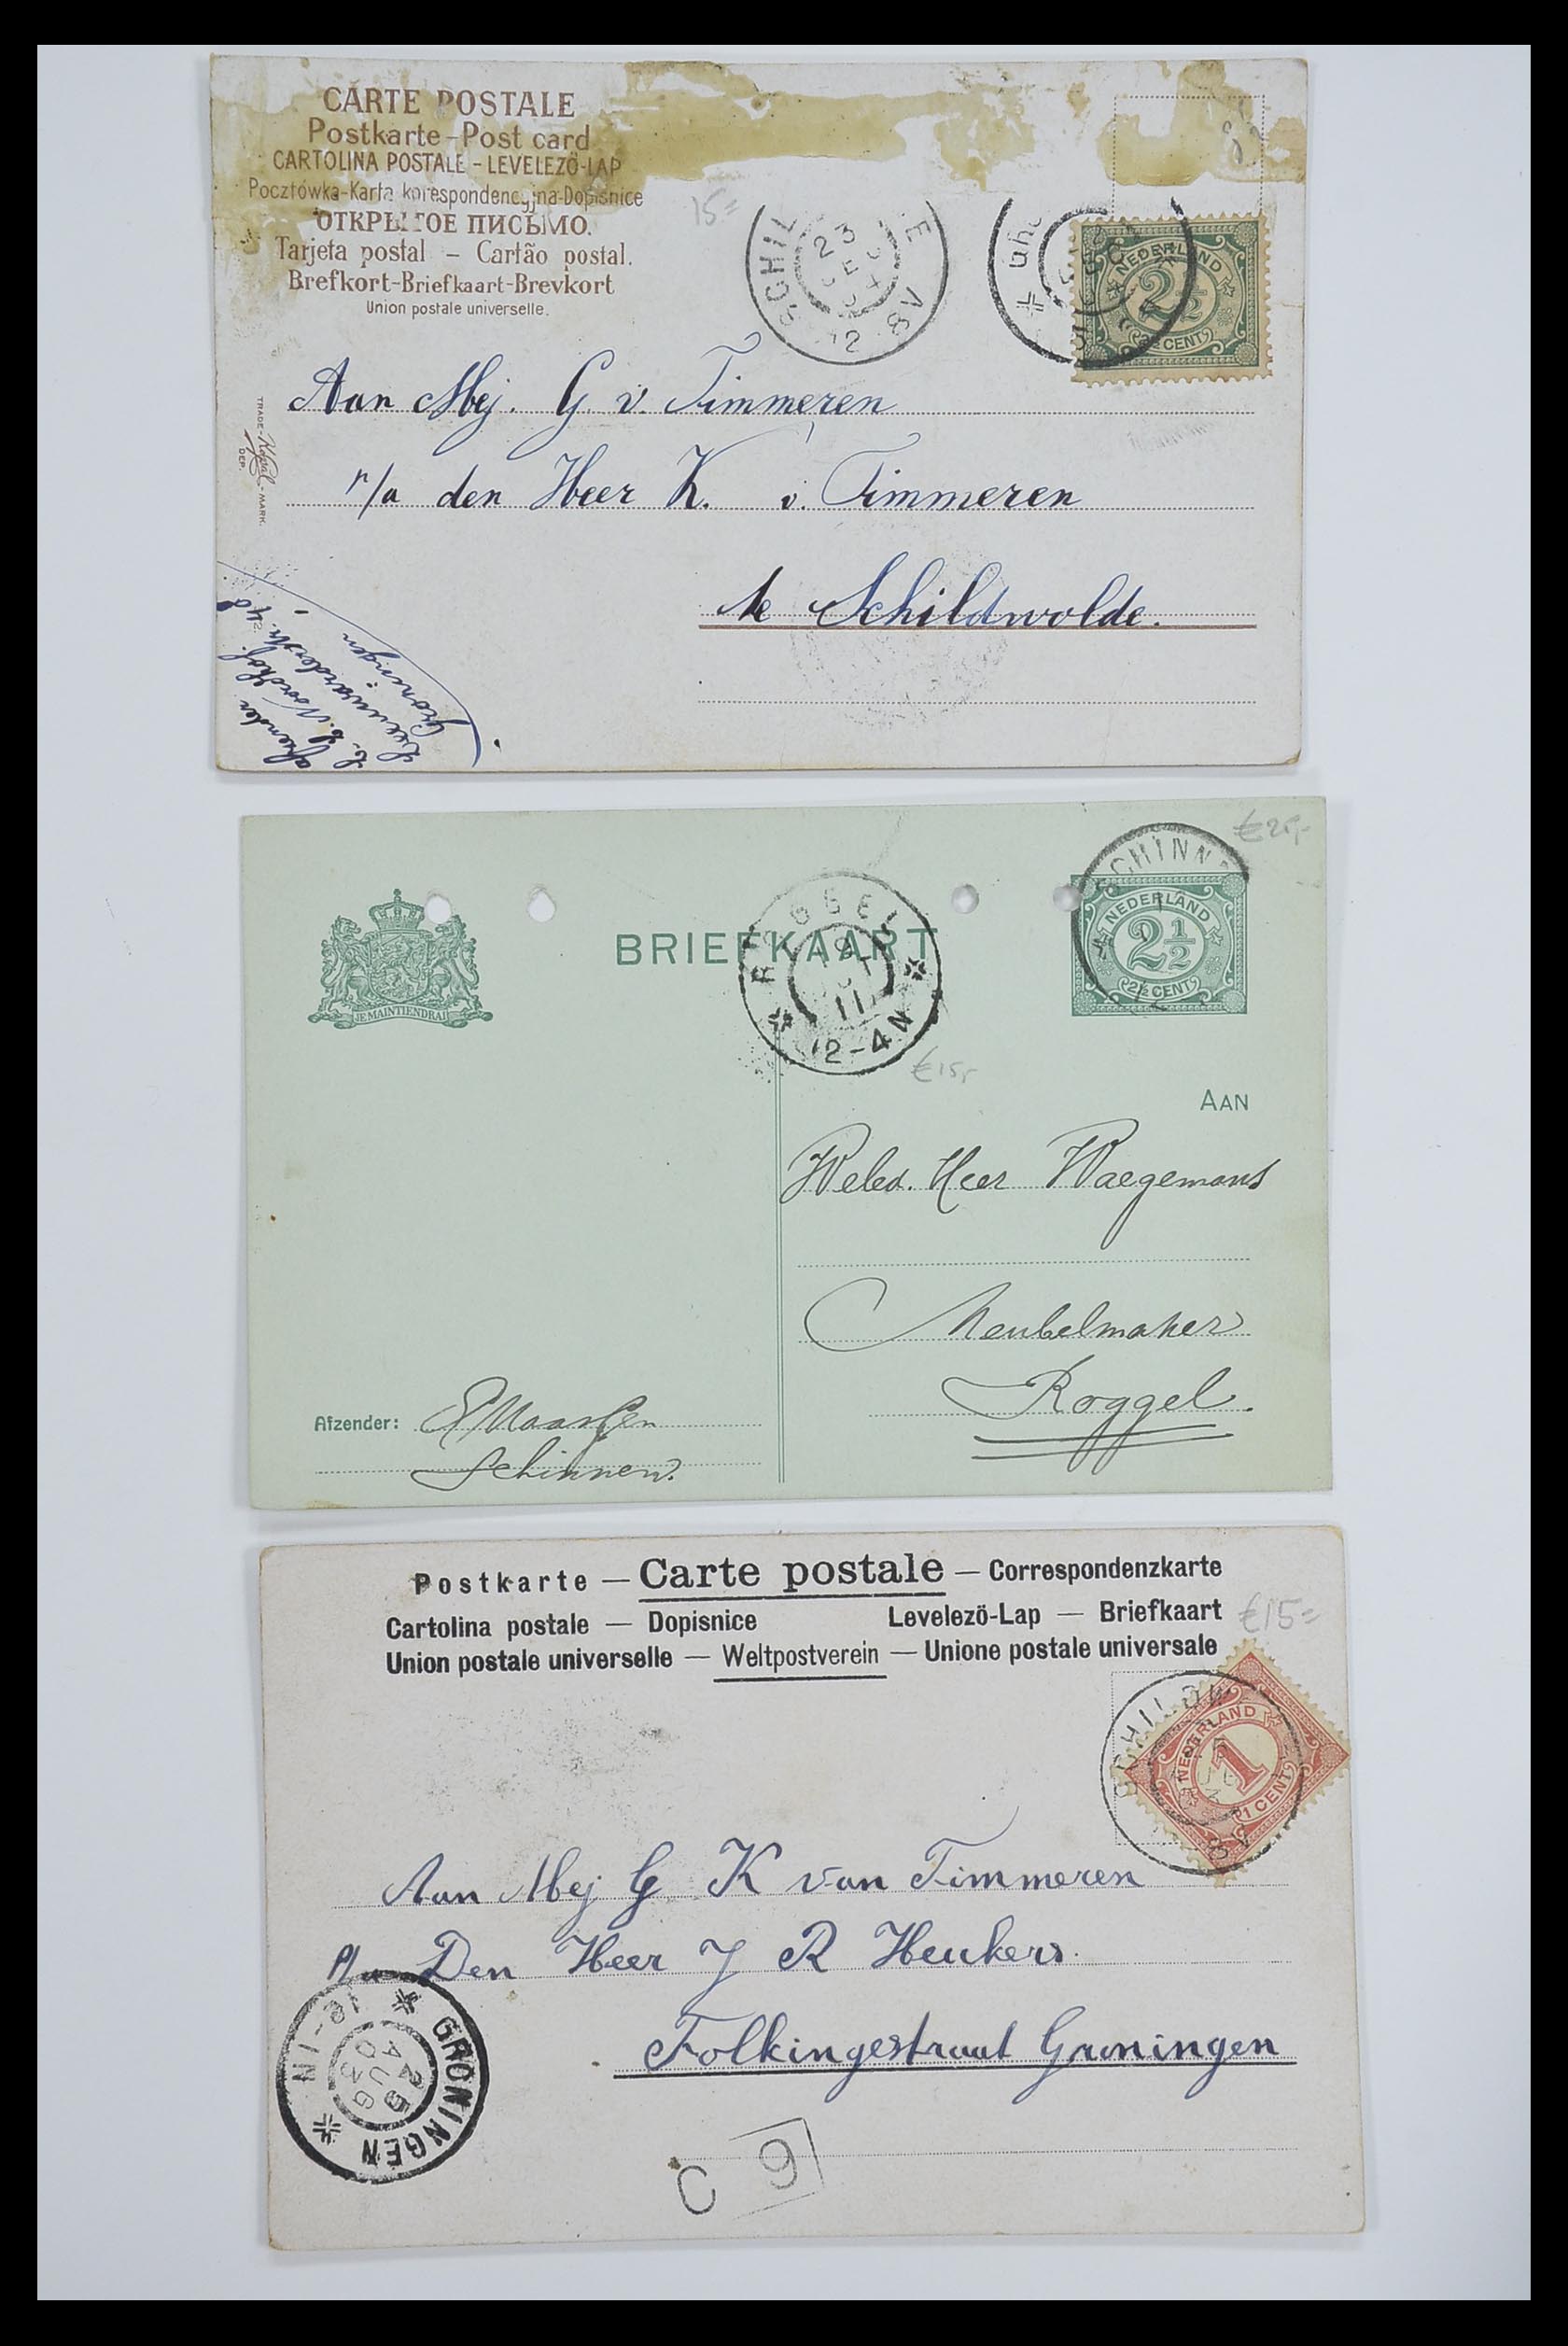 CARTE POSTALE
Postkarte-Post card
CARTOLINA POSTALE - LEVELEZÖ-LAP
Pocztówka-Karta korespondencyjna-Dopisnice
ОТКРЫТОЕ ПИСЬМО.
Tarjeta postal - Cartão postal.
Brefkort-Briefkaart-Brevkort
Union postale universelle.
15=
SCHIL E
23
12-8V
NEDERLAND
2½
2½ CENT
Aan Mej. G. v. Timmeren
p/a den Heer K. v. Timmeren
te Schildwolde.
TRADE- MARK.
DEP.
Afzender
Noordhof
Groningen
€25,-
SCHINN
NEDERLAND
2½
2½ CENT
JE MAINTIENDRAI
BRIEFKAART
ROGGEL
19
11
12-4N
€15,-
AAN
Weled. Heer Waegemans
Meubelmaker
Roggel.
Afzender: Maassen
Schinnen.
Postkarte — Carte postale — Correspondenzkarte
Cartolina postale — Dopisnice Levelezö-Lap — Briefkaart
Union postale universelle — Weltpostverein — Unione postale universale
€15=
SCHILDW
8V
NEDERLAND
1
1 CENT
Aan Mej G K van Timmeren
P/a Den Heer J R Heukers
Folkingestraat Groningen
GRONINGEN
25
AUG
03
12-1N
C 9